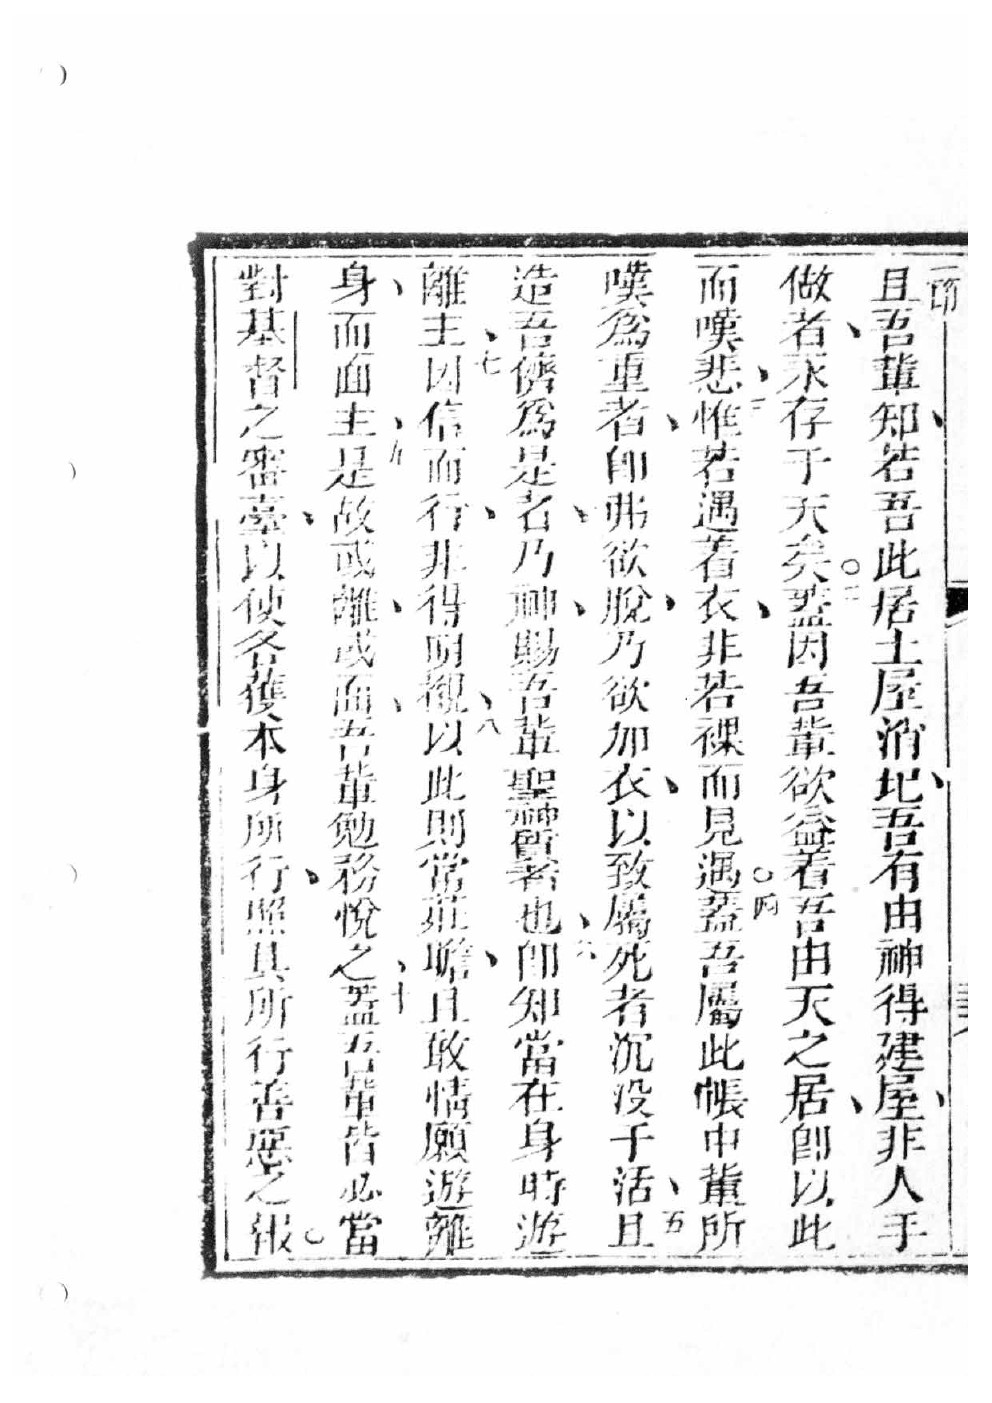 且吾輩知若吾此居土屋消圮、吾有由神得建屋、非人手
做者、永存于天矣。二蓋因吾輩欲益着吾由天之居、卽以此
而嘆悲、三惟若遇着衣、非若裸而見遇。四蓋吾屬此帳中輩所
嘆爲重者、卽弗欲脫、乃欲加衣、以致屬死者沉没于活、五且
造吾儕爲是者、乃神、賜吾輩聖神質者也、六卽知當在身時遊
離主、七因信而行、非得明觀、八以此則常莊瞻、且敢情願遊離
身、而面主、九是故或離、或面、吾輩勉務悅之、十蓋吾輩皆必當
對基督之審臺、以使各獲本身所行、照其所行善惡之報。